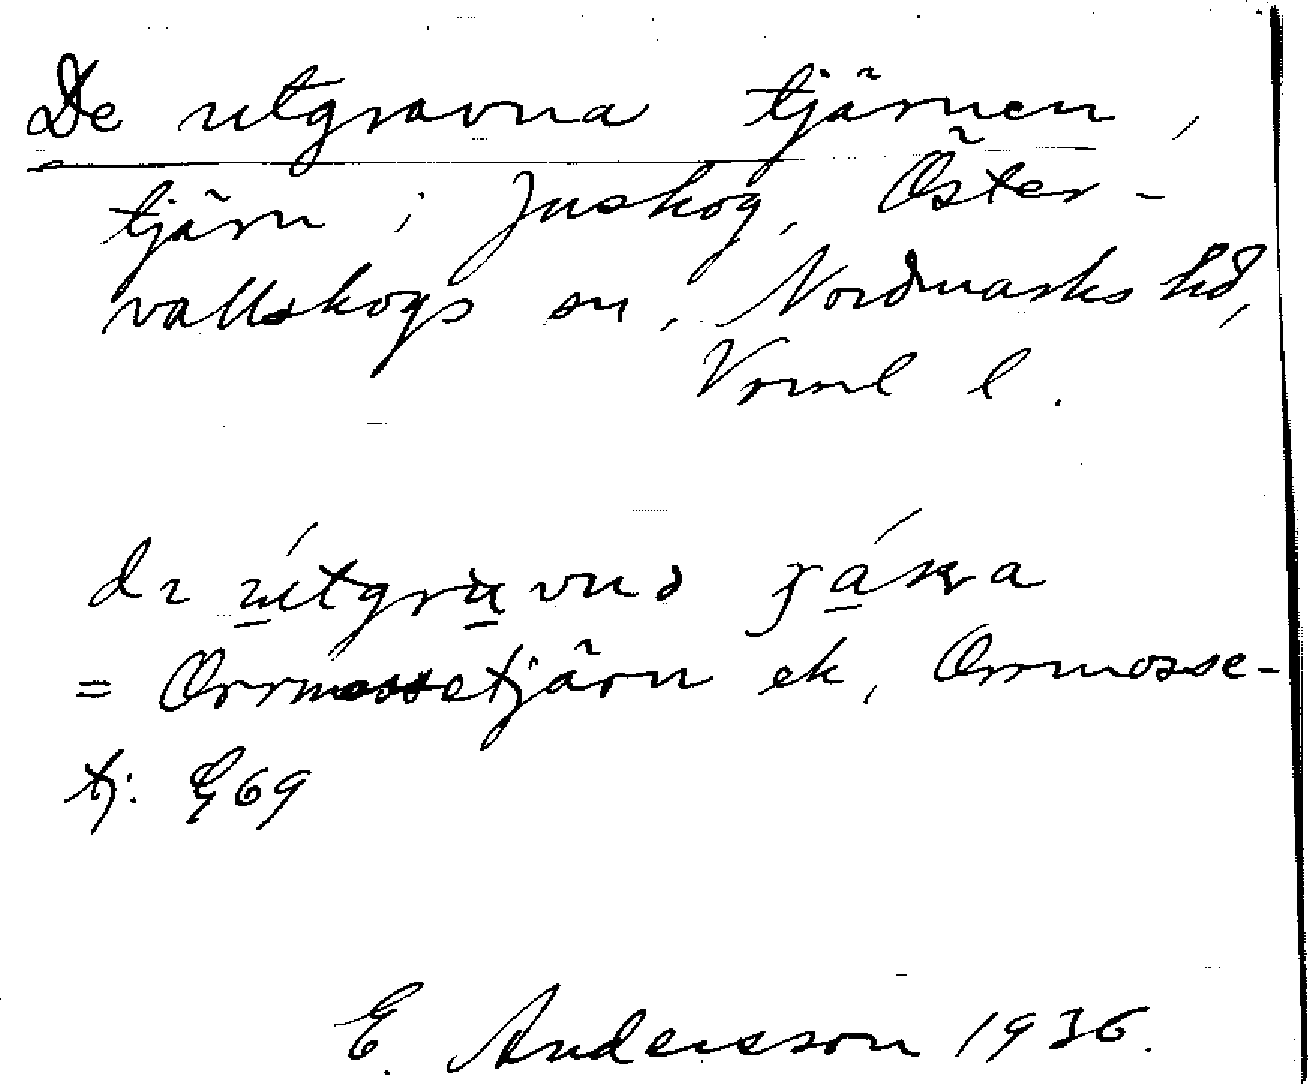 De utgravna tjärnen,
tjärn i Juskog, Öster-
vallskogs sn, Nordmarks hd,
Vrml l.
= Orrmossetjärn ek, Orrmosse-
tj: E 69
E. Andersson 1936.